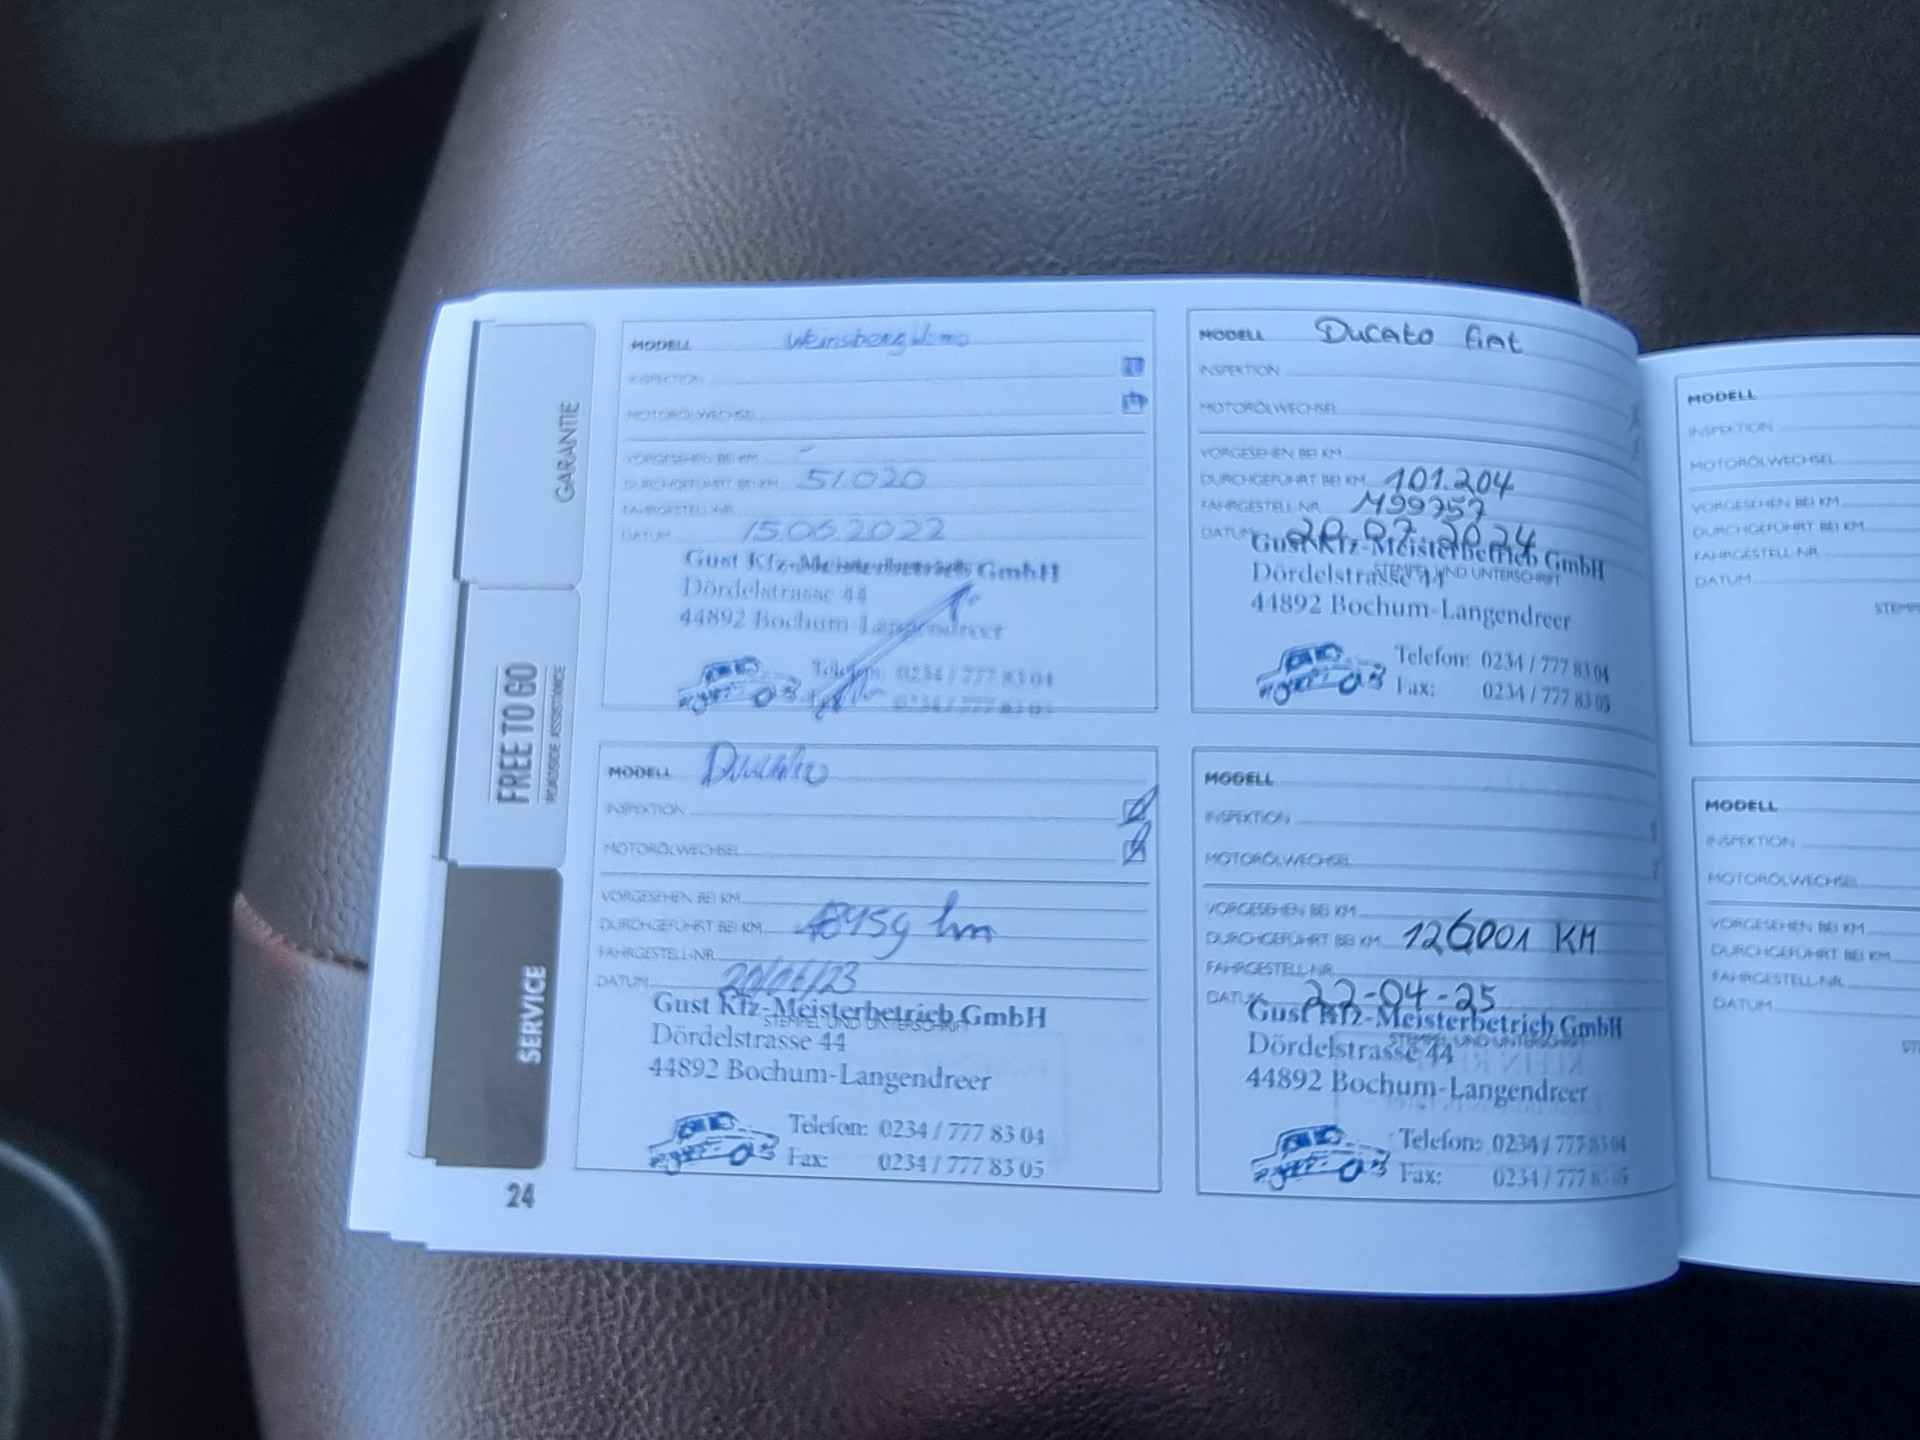 GARANTIE
FREE TO GO
ROADSIDE ASSISTANCE
SERVICE
24
MODELL
INSPEKTION
MOTORÖLWECHSEL
VORGESEHEN BEI KM
DURCHGEFÜHRT BEI KM 51.020
FAHRGESTELL-NR.
DATUM 15.06.2022
Gust Kfz-Meisterbetrieb GmbH
Dördelstrasse 44
44892 Bochum-Langendreer
Telefon: 0234 / 777 83 04
0234 / 777 83 05
MODELL Ducato
INSPEKTION
MOTORÖLWECHSEL
VORGESEHEN BEI KM
DURCHGEFÜHRT BEI KM
FAHRGESTELL-NR.
DATUM
Gust Kfz-Meisterbetrieb GmbH
STEMPEL UND UNTERSCHRIFT
Dördelstrasse 44
44892 Bochum-Langendreer
Telefon: 0234 / 777 83 04
Fax: 0234 / 777 83 05
MODELL Ducato fiat
INSPEKTION
MOTORÖLWECHSEL
VORGESEHEN BEI KM
DURCHGEFÜHRT BEI KM 101.204
FAHRGESTELL-NR. M99757
DATUM 20.07.2024
Gust Kfz-Meisterbetrieb GmbH
STEMPEL UND UNTERSCHRIFT
Dördelstrasse 44
44892 Bochum-Langendreer
Telefon: 0234 / 777 83 04
Fax: 0234 / 777 83 05
MODELL
INSPEKTION
MOTORÖLWECHSEL
VORGESEHEN BEI KM
DURCHGEFÜHRT BEI KM 126001 KM
FAHRGESTELL-NR.
DATUM 22-04-25
Gust Kfz-Meisterbetrieb GmbH
STEMPEL UND UNTERSCHRIFT
Dördelstrasse 44
44892 Bochum-Langendreer
Telefon: 0234 / 777 83 04
Fax: 0234 / 777 83 05
MODELL
INSPEKTION
MOTORÖLWECHSEL
VORGESEHEN BEI KM
DURCHGEFÜHRT BEI KM
FAHRGESTELL-NR.
DATUM
STEMP
MODELL
INSPEKTION
MOTORÖLWECHSEL
VORGESEHEN BEI KM
DURCHGEFÜHRT BEI KM
FAHRGESTELL-NR.
DATUM
ST